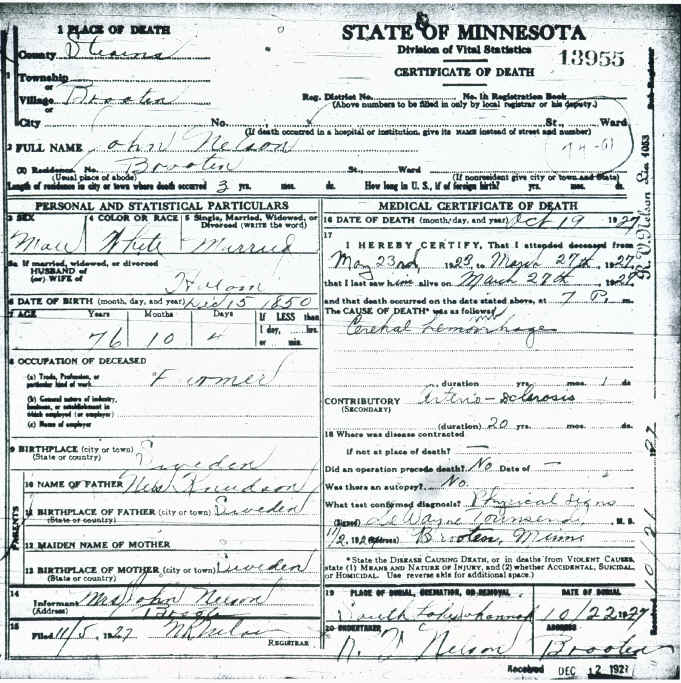 1 PLACE OF DEATH
County Stearns
Township
or
Village Brooten
or
City No. St., Ward
(If death occurred in a hospital or institution, give its NAME instead of street and number)
STATE OF MINNESOTA
Division of Vital Statistics
CERTIFICATE OF DEATH
13955
Reg. District No. No. in Registration Book
(Above numbers to be filled in only by local registrar or his deputy.)
2 FULL NAME John Nelson
(2) Residence. No. Brooten St., Ward
(Usual place of abode) (If nonresident give city or town and State)
Length of residence in city or town where death occurred 3 yrs. mos. ds. How long in U. S., if of foreign birth? yrs. mos. ds.
PERSONAL AND STATISTICAL PARTICULARS
3 SEX 4 COLOR OR RACE 5 Single, Married, Widowed, or Divorced (WRITE the word)
Male White Married
5a If married, widowed, or divorced
HUSBAND of
(or) WIFE of
6 DATE OF BIRTH (month, day, and year) Dec 15 1850
7 AGE Years Months Days If LESS than
1 day, hrs.
or min.
76 10 4
8 OCCUPATION OF DECEASED
(a) Trade, Profession, or
particular kind of work Farmer
(b) General nature of industry,
business, or establishment in
which employed (or employer)
(c) Name of employer
9 BIRTHPLACE (city or town)
(State or country) Sweden
PARENTS
10 NAME OF FATHER Nels Knudson
11 BIRTHPLACE OF FATHER (city or town) Sweden
(State or country)
12 MAIDEN NAME OF MOTHER
13 BIRTHPLACE OF MOTHER (city or town) Sweden
(State or country)
14
Informant Mrs John Nelson
(Address) Brooten
15
Filed 11/5 1927
REGISTRAR
MEDICAL CERTIFICATE OF DEATH
16 DATE OF DEATH (month, day, and year) Oct 19 1927
17
I HEREBY CERTIFY, That I attended deceased from
May 23rd, 1923 to March 27th, 1927
that I last saw him alive on March 27th, 1927
and that death occurred on the date stated above, at 7 P. m.
The CAUSE OF DEATH* was as follows:
Cerebral Hemorrhage
duration yrs. mos. 1 ds
CONTRIBUTORY Arterio-Sclerosis
(SECONDARY)
(duration) 20 yrs. mos. ds.
18 Where was disease contracted
if not at place of death? —
Did an operation precede death? No Date of —
Was there an autopsy? No.
What test confirmed diagnosis? Physical signs
(Signed) DeWayne Townsend, M. D.
11/2, 1927 (Address) Brooten, Minn
*State the DISEASE CAUSING DEATH, or in deaths from VIOLENT CAUSES,
state (1) MEANS AND NATURE OF INJURY, and (2) whether ACCIDENTAL, SUICIDAL,
or HOMICIDAL. Use reverse side for additional space.
19 PLACE OF BURIAL, CREMATION, OR REMOVAL DATE OF BURIAL
South 10/22 1927
20 UNDERTAKER ADDRESS
R. V. Nelson Brooten
Received DEC 12 1927
R. V. Nelson Lic 1053
Received 10/21 1927
Sub-Registrar